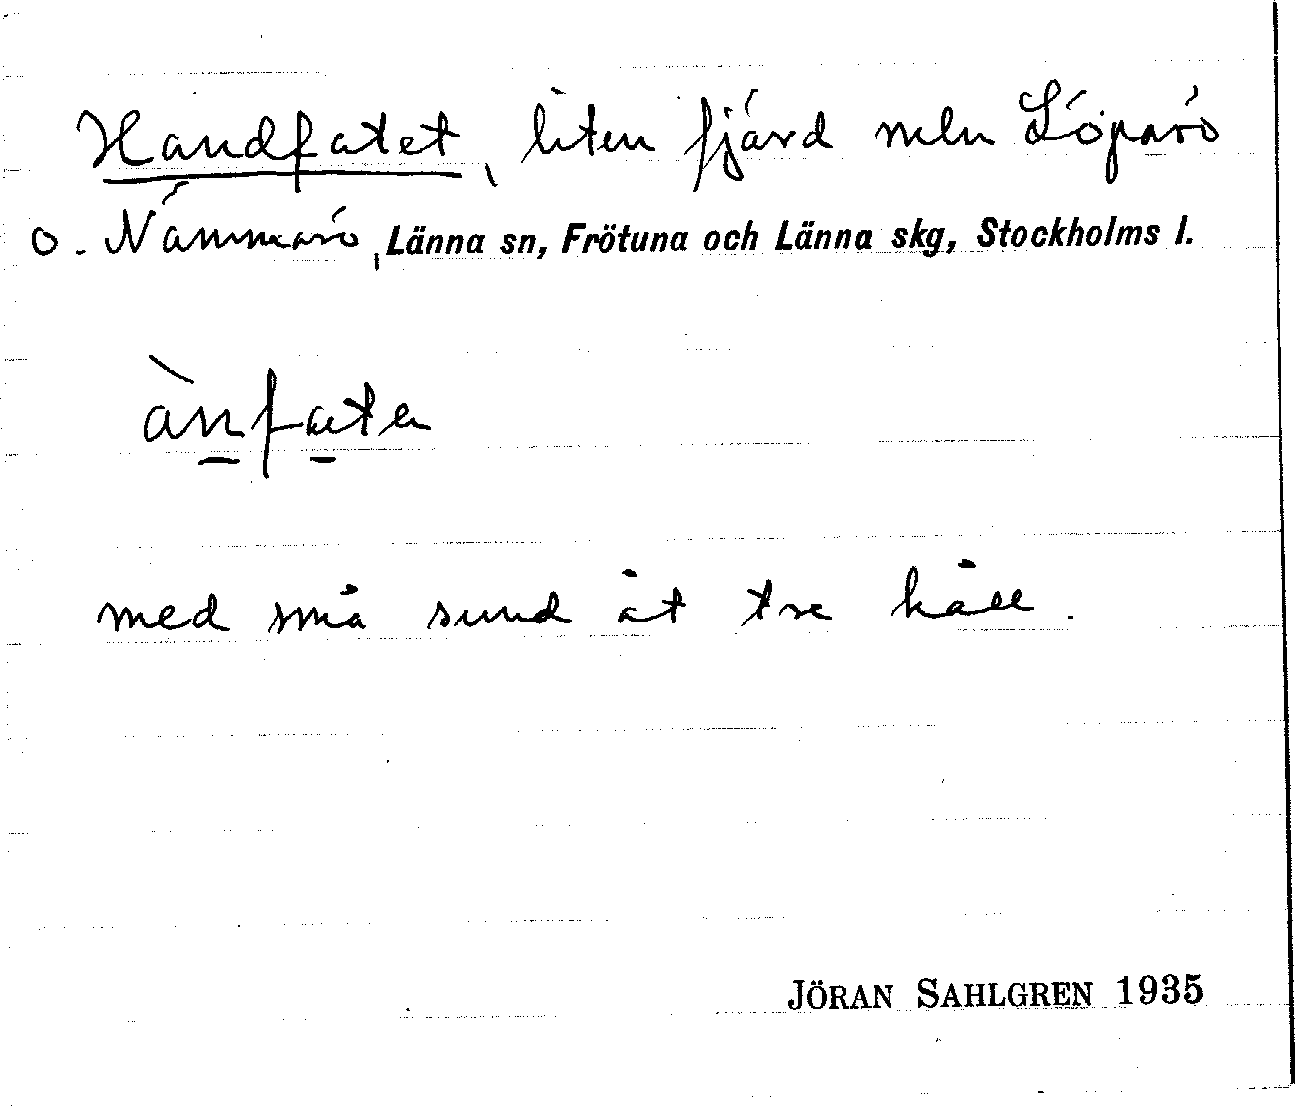 Handfatet, liten fjärd mln Löparö
o. Nämmarö, Länna sn, Frötuna och Länna skg, Stockholms l.
ànfatɘ
med små sund åt tre håll.
JÖRAN SAHLGREN 1935